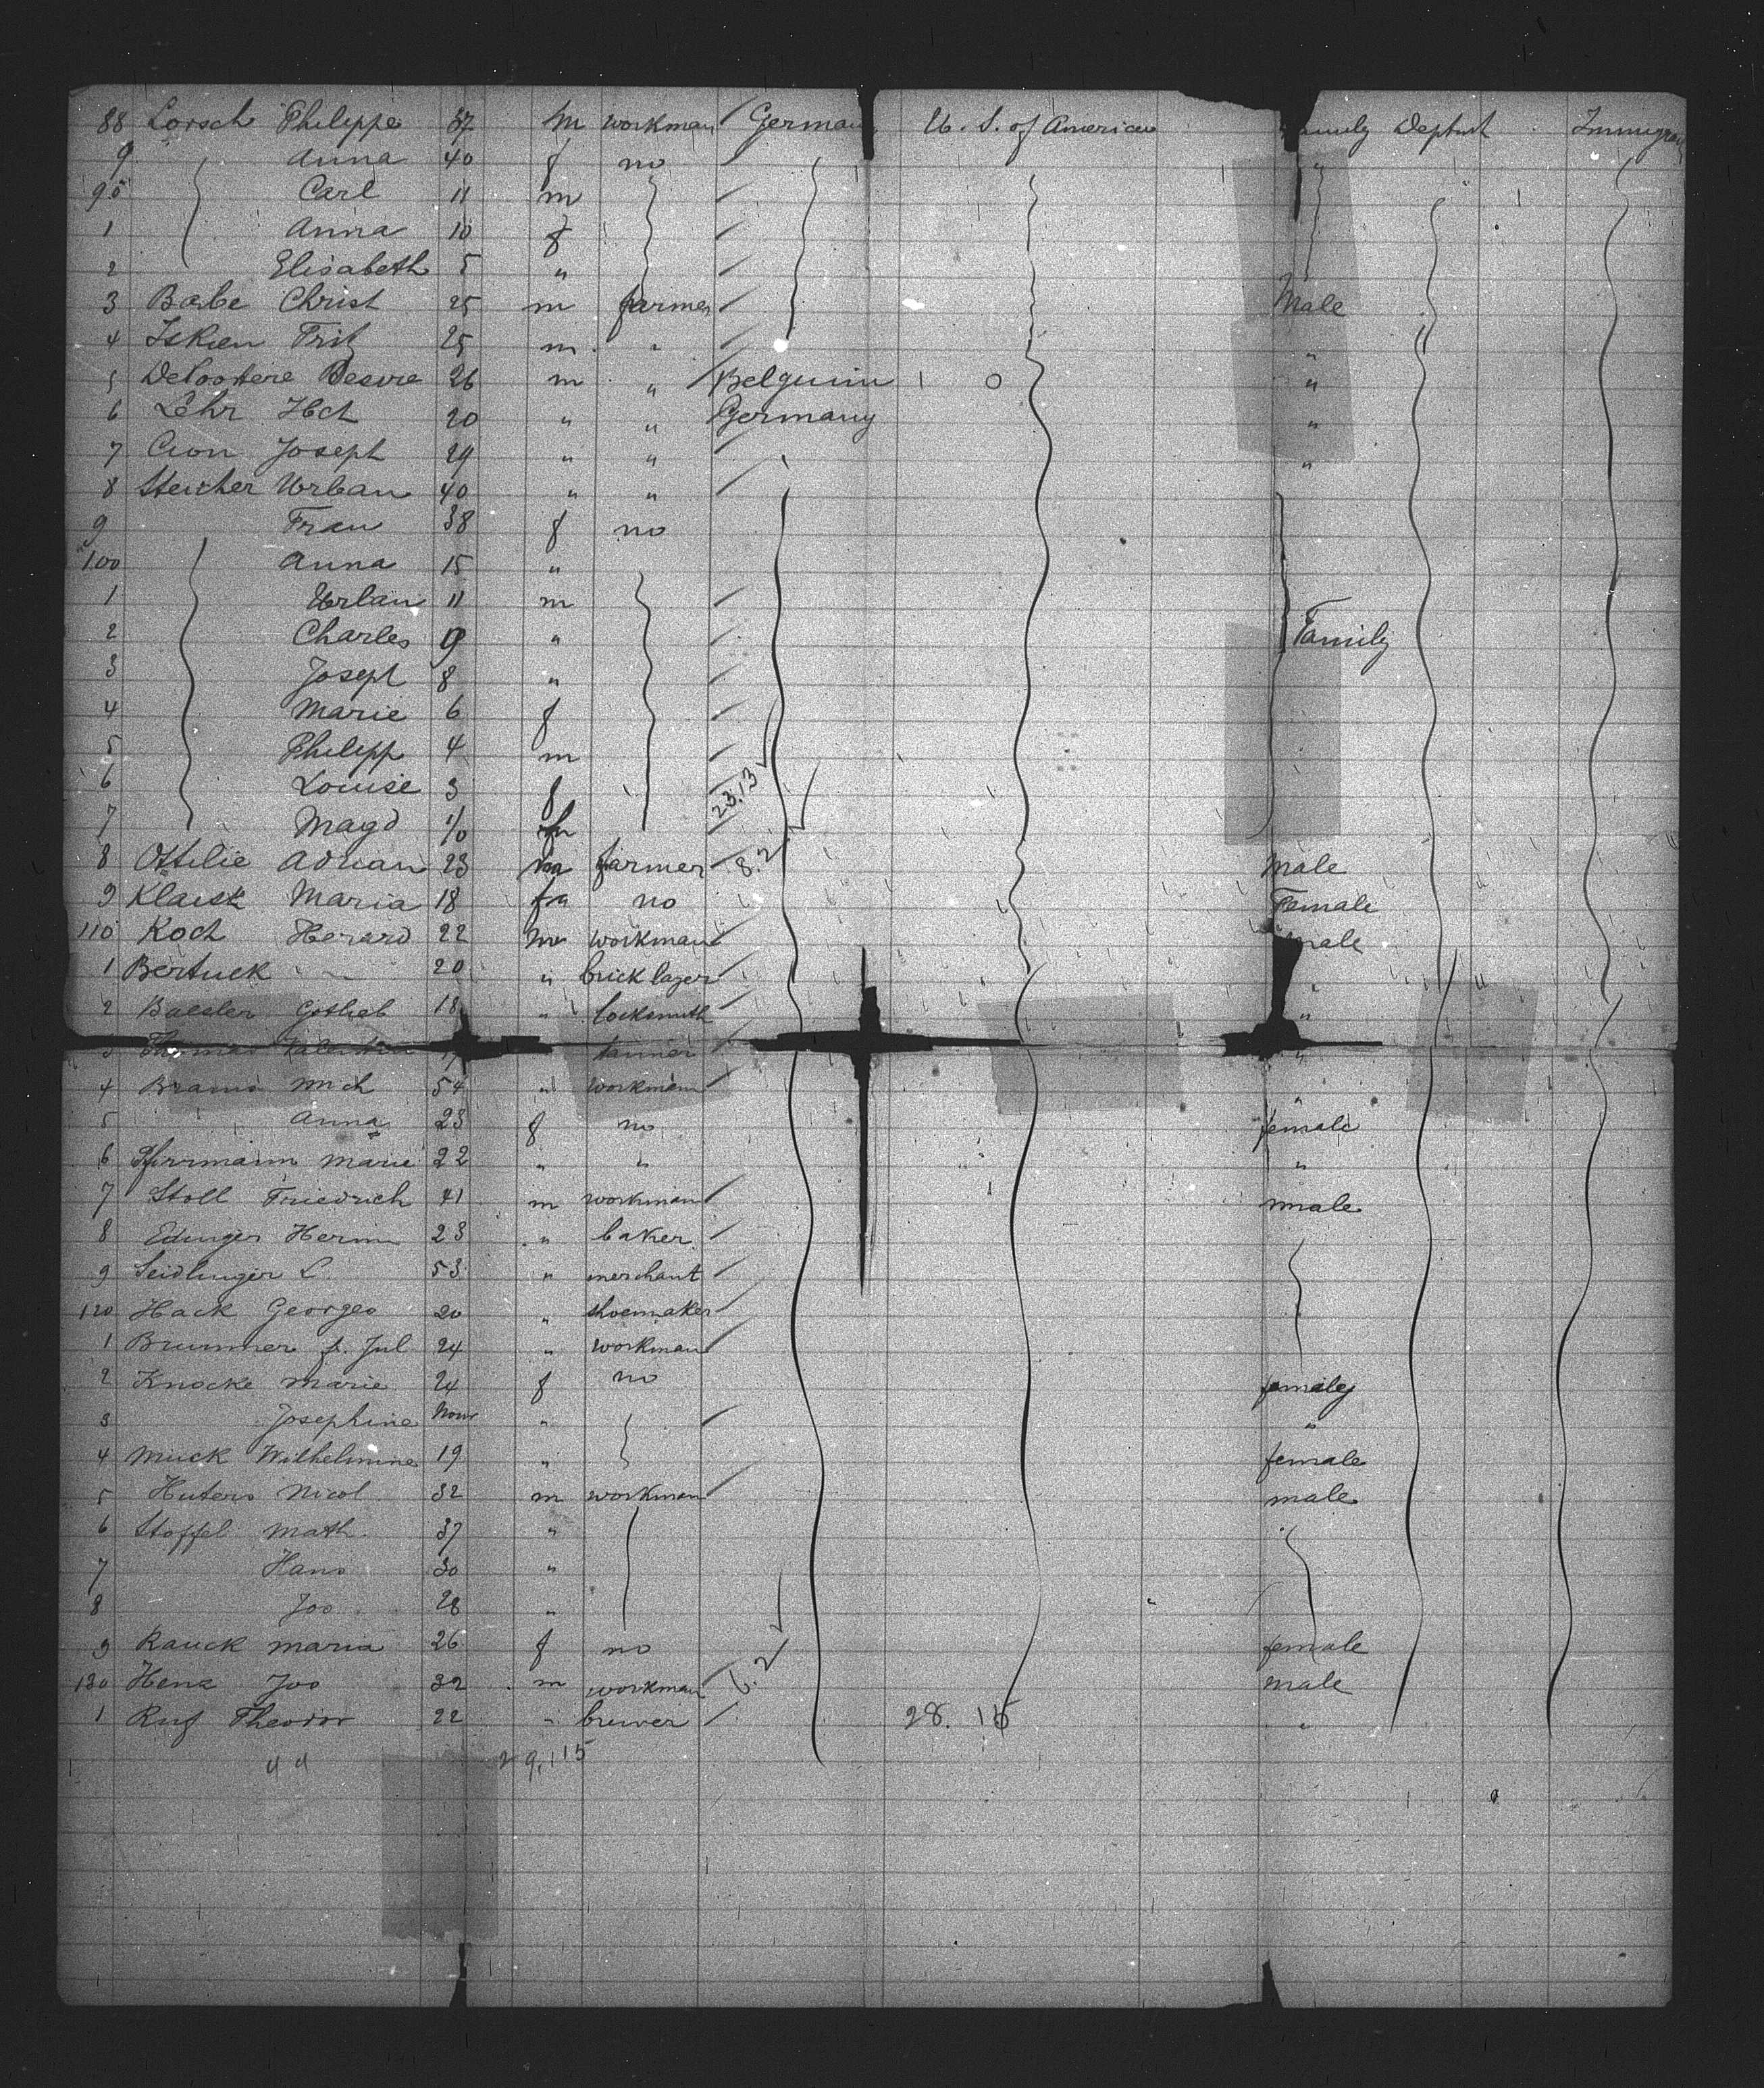 88 Lorsch Philippe 37 m workman German U. S. of America Family Deptmt Immigran
9 Anna 40 f no "
90 Carl 11 m
1 Anna 10 f
2 Elisabeth 5 "
3 Barbe Christ 25 m farmer Male
4 Isken Fritz 25 m " "
5 26 m " Belguim 1 0 "
6 Lehr Hch 20 " " Germany "
7 Cron Joseph 29 " " "
8 Steicher Urban 40 " "
9 Frau 38 f no
100 Anna 15 "
1 Urban 11 m
2 Charles 9 " Family
3 Joseph 8 "
4 Marie 6 f
5 Philipp 4 m
6 Louise 3 f 23.13
7 Magd
8 Ottilie Adrian 23 m farmer 8.2 Male
9 Maria 18 f no Female
110 Koch Herard 22 m workman male
1 Bertuck 20 " brick layer "
2 Baesler Gotlieb 18 " locksmith "
3 Thomas Valentin tanner "
4 Brams Mch 54 " workman "
5 Anna 23 f no female
6 Pfirrmann Marie 22 " " "
7 Stoll Friedrich 41 m workman male
8 Edinger Herm 23 " baker
9 Seidlinger L. 53 " merchant
120 Hack Georges 20 " shoemaker
1 Brummer Jul 24 " workman
2 Knocke Marie 24 f no family
3 Josephine " "
4 Muck Wilhelmine 19 " female
5 Huters Nicol 32 m workman male
6 Stoffel Math. 37 "
7 Hans 30 "
8 Jos 28 "
9 Rauck Maria 26 f no female
130 Henz Jos 32 m workman 6.2 male
1 Ruf Theodor 22 " brewer 28. 15 "
44 29,115